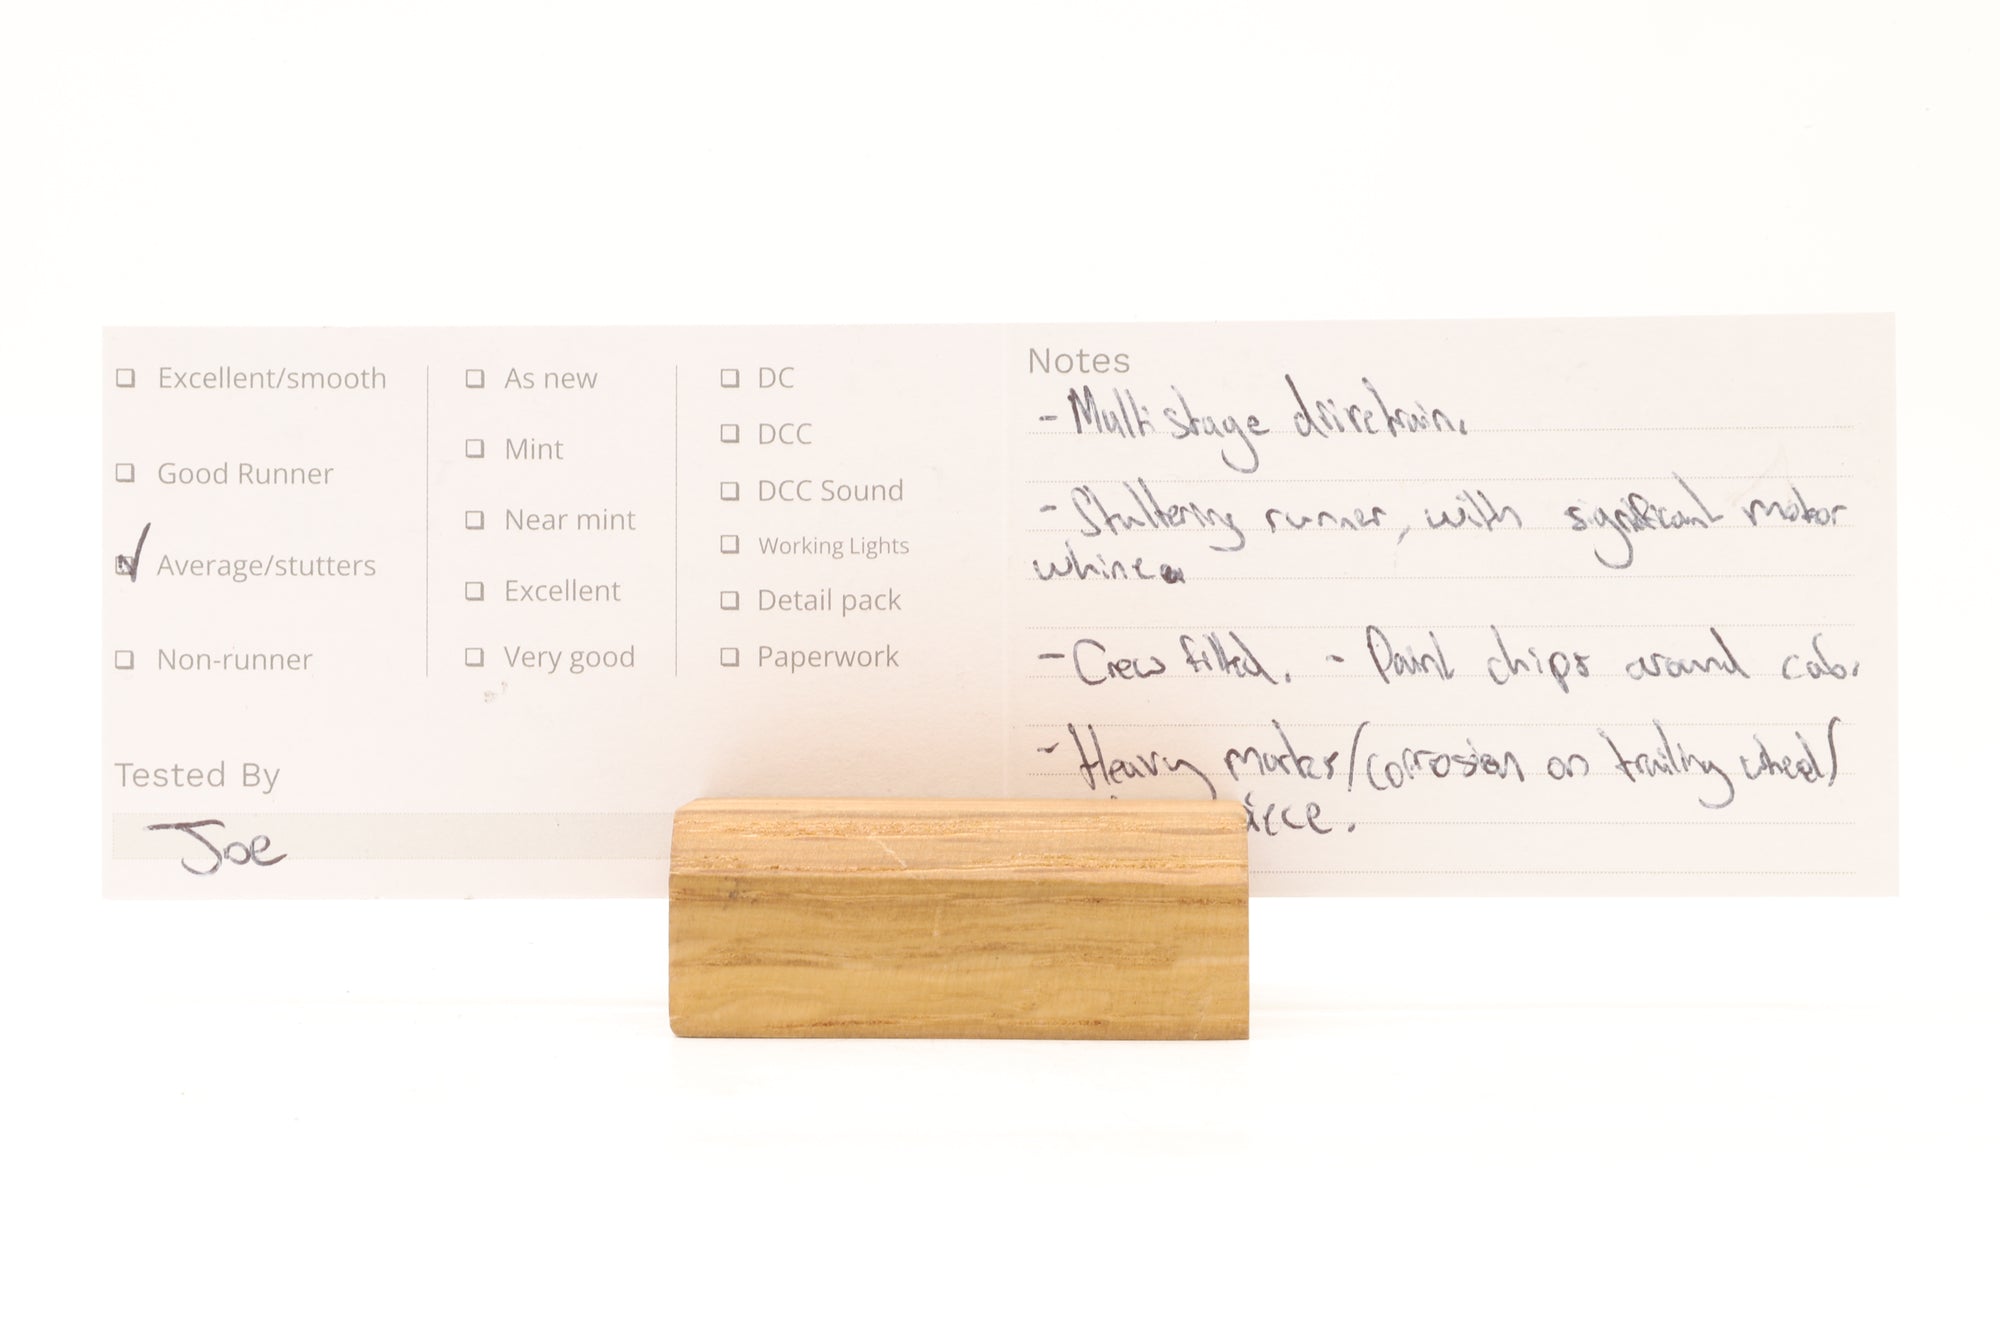 Excellent/smooth
Good Runner
Average/stutters
Non-runner
As new
Mint
Near mint
Excellent
Very good
DC
DCC
DCC Sound
Working Lights
Detail pack
Paperwork
Tested By
Joe
Notes
- Multi stage drivetrain.
- Stuttering runner, with significant motor
whine
- Crew fitted. - Paint chips around cab.
- Heavy marks/corrosion on trailing wheel/